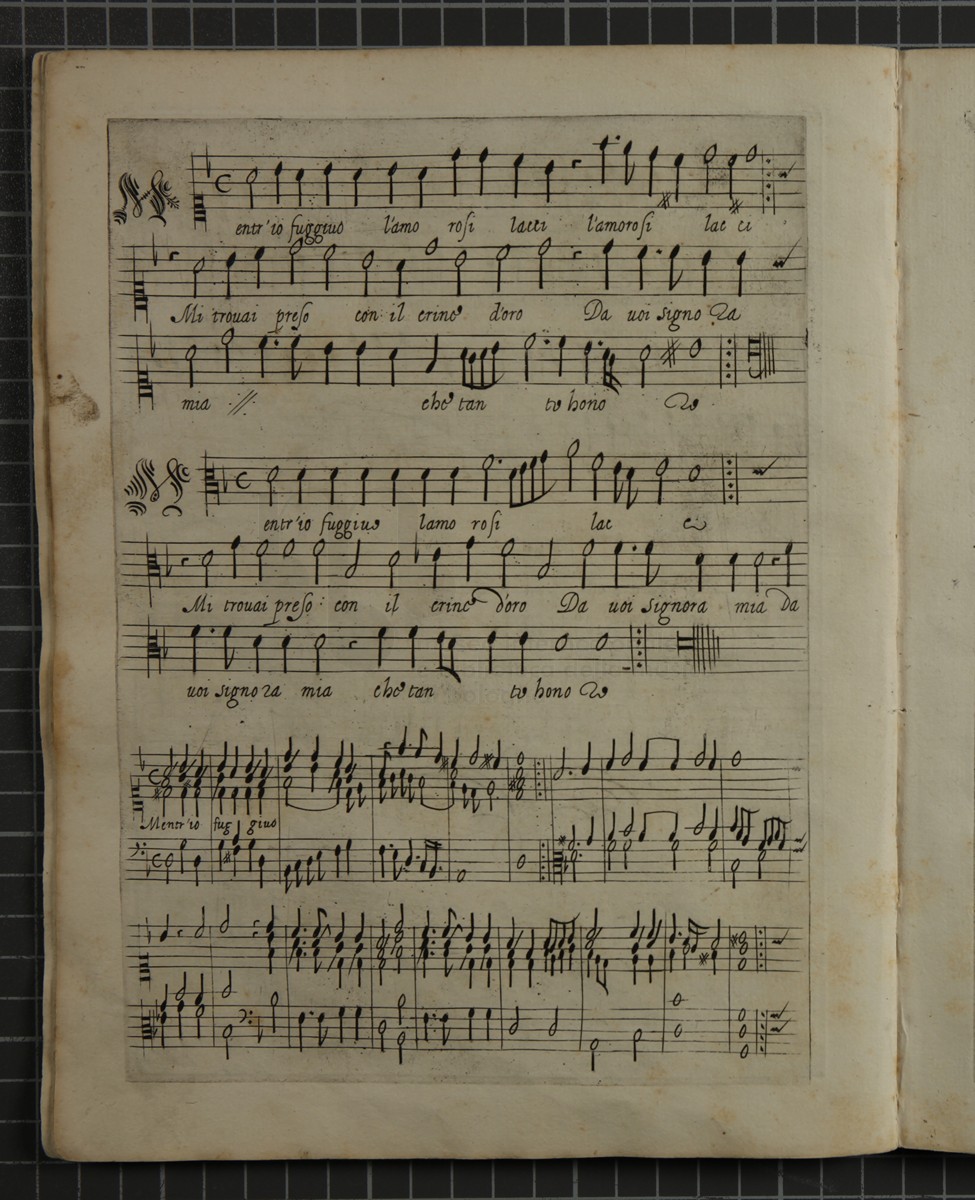 Mentr'io fuggiuo l'amo rosi lacci l'amorosi lac ci
Mi trouai preso con il crine d'oro Da uoi signo ra
mia che tan to hono ro
Mentr'io fuggiuo lamo rosi lac ci
Mi trouai preso con il crine d'oro Da uoi signora mia da
uoi signo ra mia che tan to hono ro
Mentr'io fug giuo